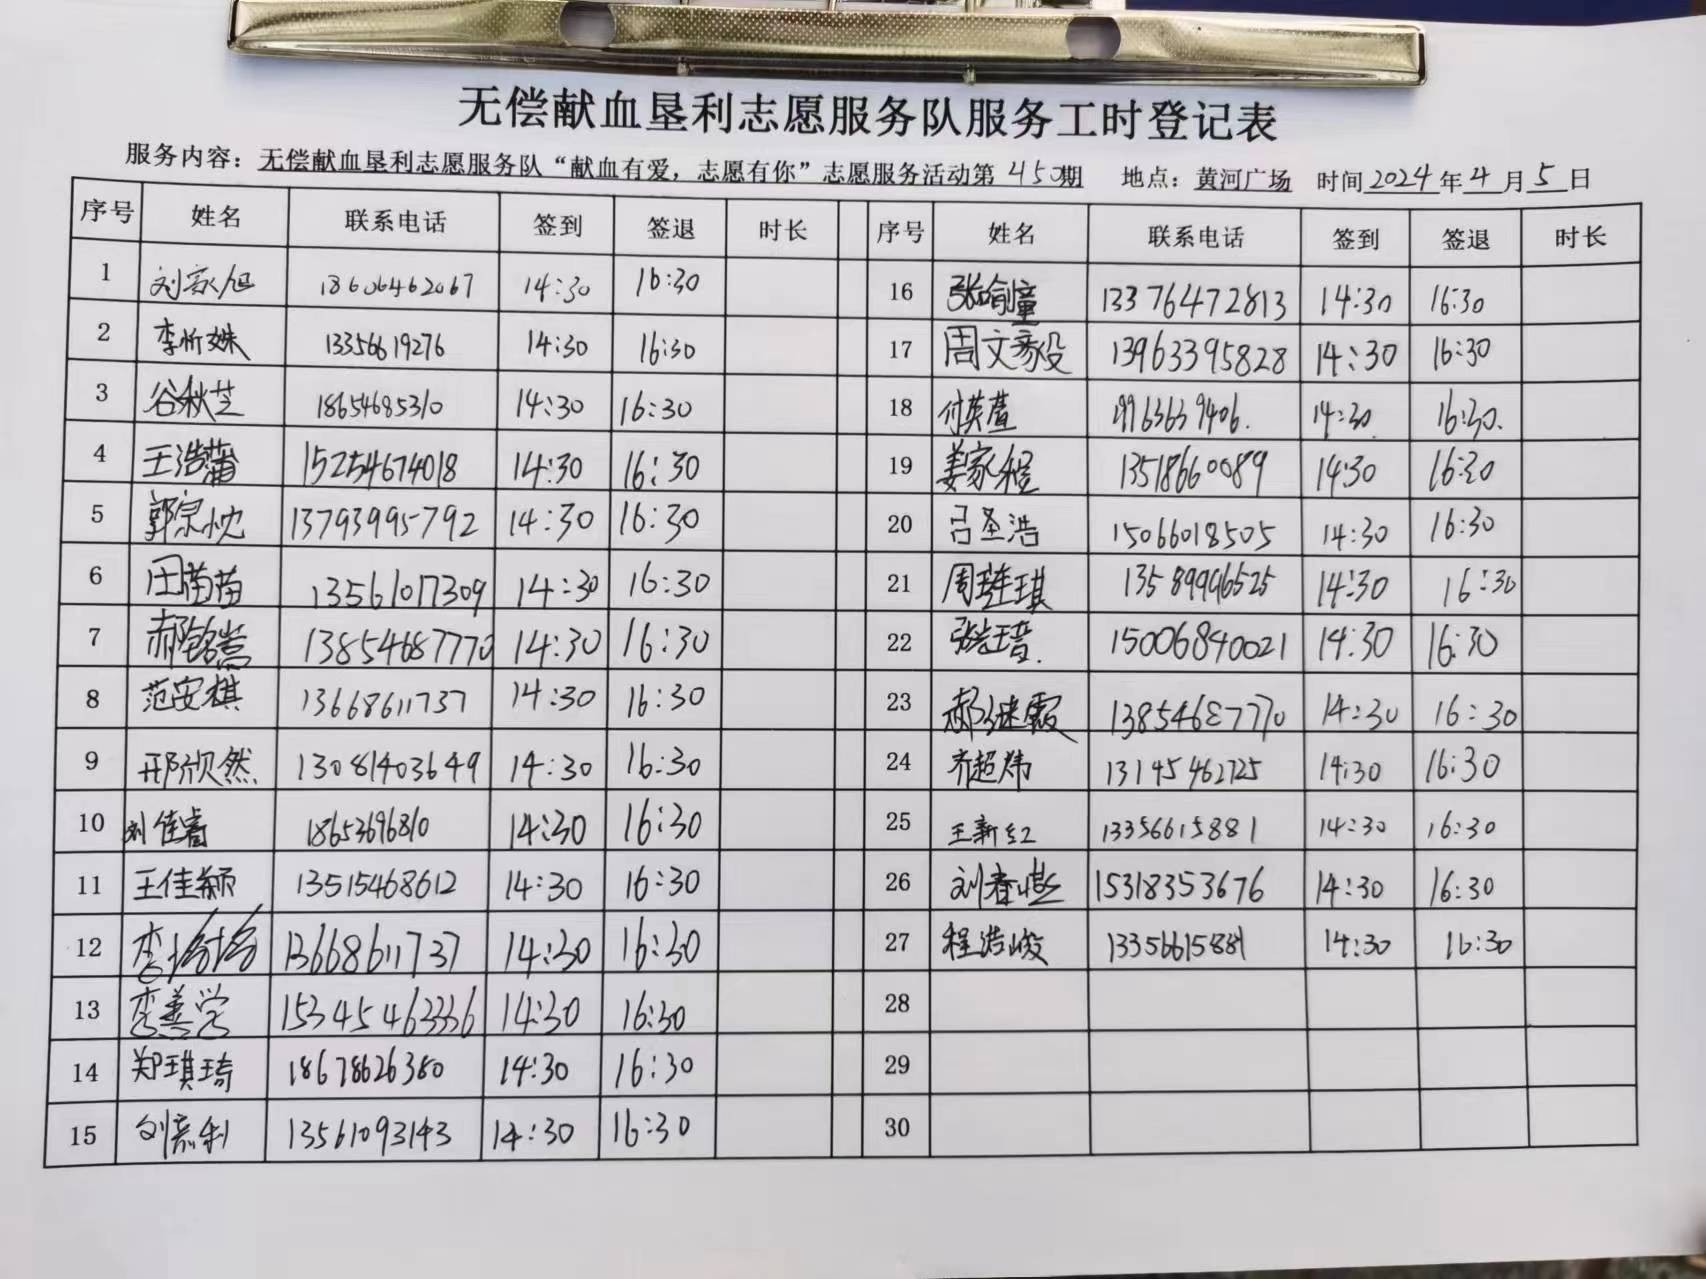 无偿献血垦利志愿服务队服务工时登记表
服务内容：无偿献血垦利志愿服务队“献血有爱，志愿有你”志愿服务活动第450期 地点：黄河广场 时间2024年4月5日
序号 姓名 联系电话 签到 签退 时长 序号 姓名 联系电话 签到 签退 时长
1 刘家旭 18606462067 14:30 16:30 16 张喻童 13376472813 14:30 16:30
2 李忻姝 13356619276 14:30 16:30 17 周文豪 13963395828 14:30 16:30
3 谷秋芝 18654685310 14:30 16:30 18 付英萱 19963639406. 14:30. 16:30.
4 王浩 15254674018 14:30 16:30 19 姜家橙 13518660089 14:30 16:30
5 郭宗忱 13793995792 14:30 16:30 20 吕圣浩 15066018505 14:30 16:30
6 田苗苗 13561077309 14:30 16:30 21 周琪 13589996525 14:30 16:30
7 郝铭嵩 13854687770 14:30 16:30 22 张 15006840021 14:30 16:30
8 范安棋 13668611737 14:30 16:30 23 郝继霞 13854687770 14:30 16:30
9 邢欣然 13081403649 14:30 16:30 24 齐超炜 13145462725 14:30 16:30
10 刘佳睿 18653696810 14:30 16:30 25 王新红 13356615881 14:30 16:30
11 王佳颖 13515468612 14:30 16:30 26 刘春 15318353676 14:30 16:30
12 李 13668611737 14:30 16:30 27 程浩峻 13356615881 14:30 16:30
13 李善学 15345463336 14:30 16:30 28
14 郑琪琦 18678626380 14:30 16:30 29
15 刘利 13561093143 14:30 16:30 30